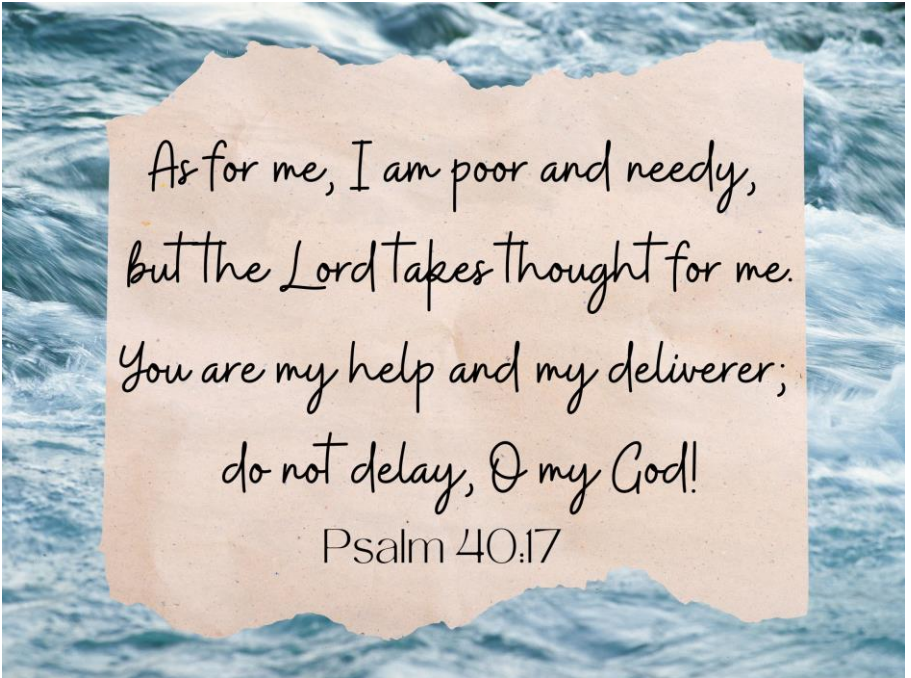 As for me, I am poor and needy,
but the Lord takes thought for me.
You are my help and my deliverer;
do not delay, O my God!
Psalm 40:17